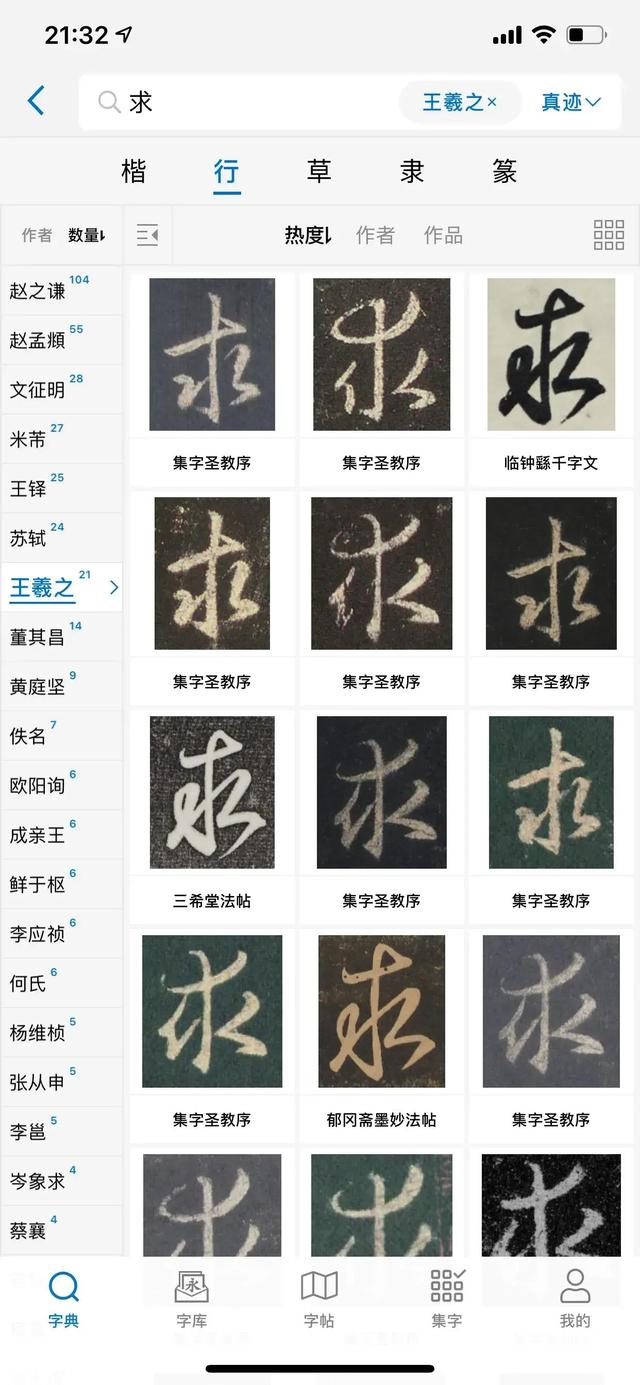 21:32
求
王羲之×
真迹
楷 行 草 隶 篆
作者 数量
热度 作者 作品
赵之谦 104
赵孟頫 55
文征明 28
米芾 27
王铎 25
苏轼 24
王羲之 21
董其昌 14
黄庭坚 9
佚名 7
欧阳询 6
成亲王 6
鲜于枢 6
李应祯 6
何氏 6
杨维桢 5
张从申 5
李邕 5
岑象求 4
蔡襄 4
求 求 求
集字圣教序 集字圣教序 临钟繇千字文
求 求 求
集字圣教序 集字圣教序 集字圣教序
求 求 求
三希堂法帖 集字圣教序 集字圣教序
求 求 求
集字圣教序 郁冈斋墨妙法帖 集字圣教序
求 求 求
永
字典 字库 字帖 集字 我的